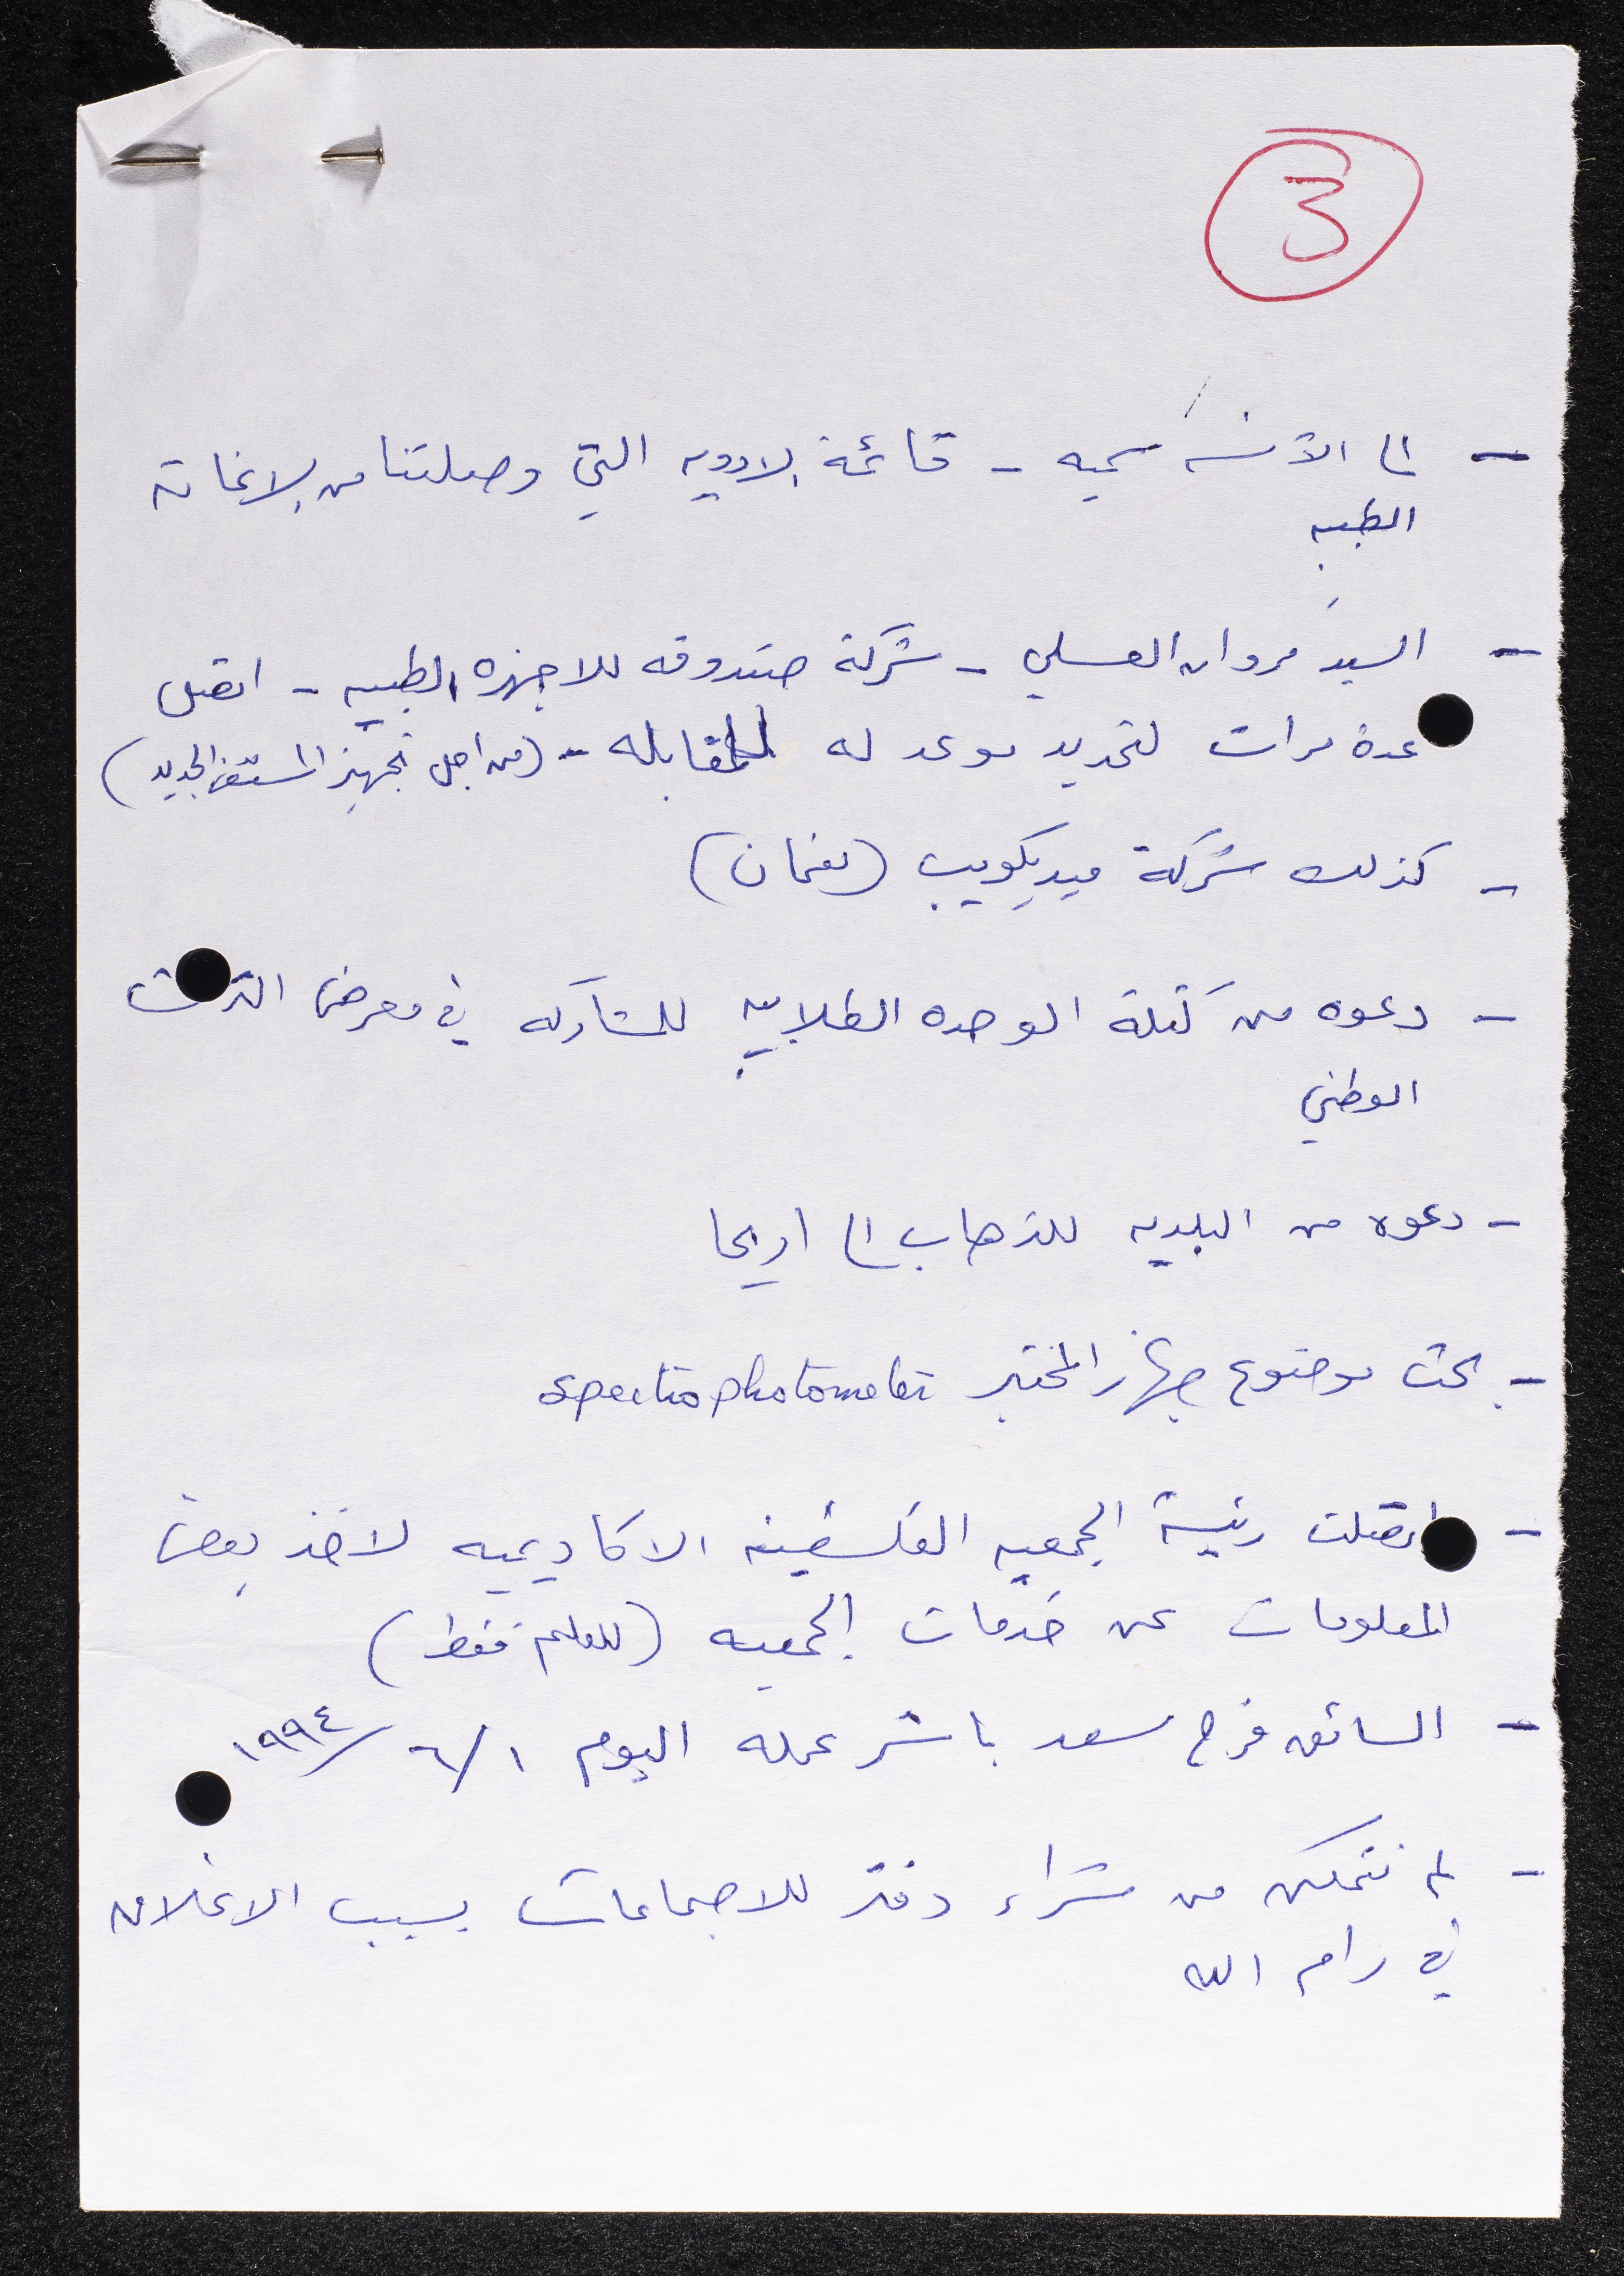 3
- الى الآنسه سميه - قائمة الادويه التي وصلتنا من الاغاثة
الطبيه
- السيد مروان العسلي - شركة صندوقه للاجهزه الطبيه - اتصل
عدة مرات لتحديد موعد له للمقابله - (من اجل تجهيز المستشفى الجديد)
- كذلك شركة ميديكويب (نعمان)
- دعوه من كتلة الوحده الطلابيه للمشاركه في معرض التراث
الوطني
- دعوه من البلديه للذهاب الى اريحا
- بحث موضوع جهاز المختبر spectrophotometer
- اتصلت رئيسة الجمعيه الفلسطينيه الاكاديميه لاخذ بعض
المعلومات عن خدمات الجمعيه (للعلم فقط)
- السائق فرح سعد باشر عمله اليوم ١/٦/١٩٩٤
- لم نتمكن من شراء دفتر للاجتماعات بسبب الاغلاق
في رام الله